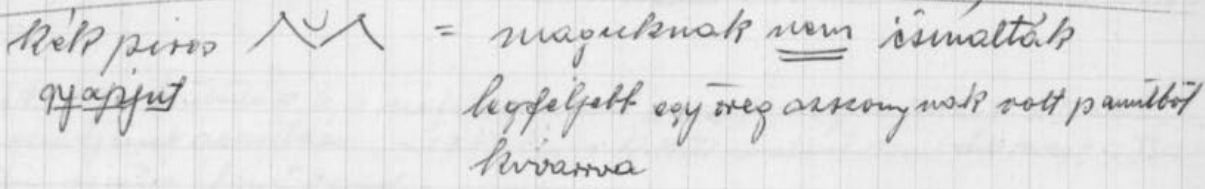 kék piros = maguknak nem csinálták
gyapjut legfeljebb egy öreg asszonynak volt pamutból
kivarrva